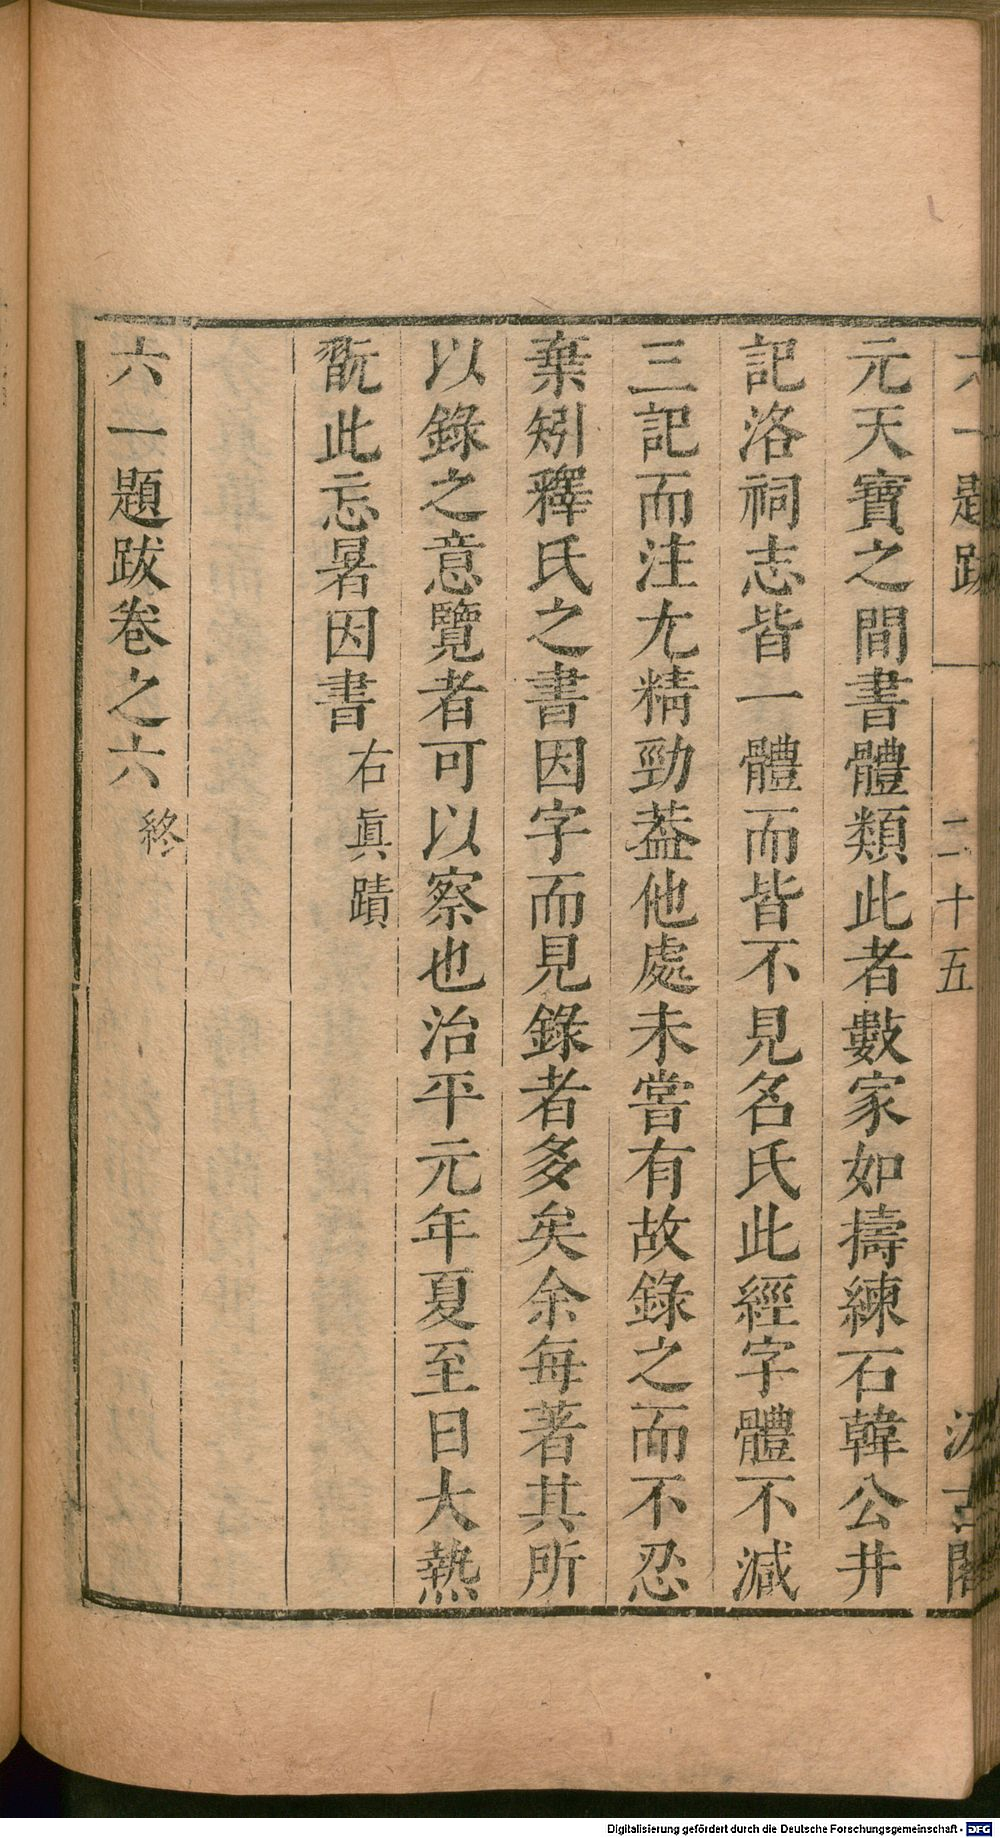 六一題跋
二十五
汲古閣
元天寶之間書體類此者數家如擣練石韓公井
記洛祠志皆一體而皆不見名氏此經字體不減
三記而注尤精勁葢他處未嘗有故錄之而不忍
棄矧釋氏之書因字而見錄者多矣余每著其所
以錄之意覽者可以察也治平元年夏至日大熱
翫此忘暑因書
右眞蹟
六一題跋卷之六
終
Digitalisierung gefördert durch die Deutsche Forschungsgemeinschaft - DFG